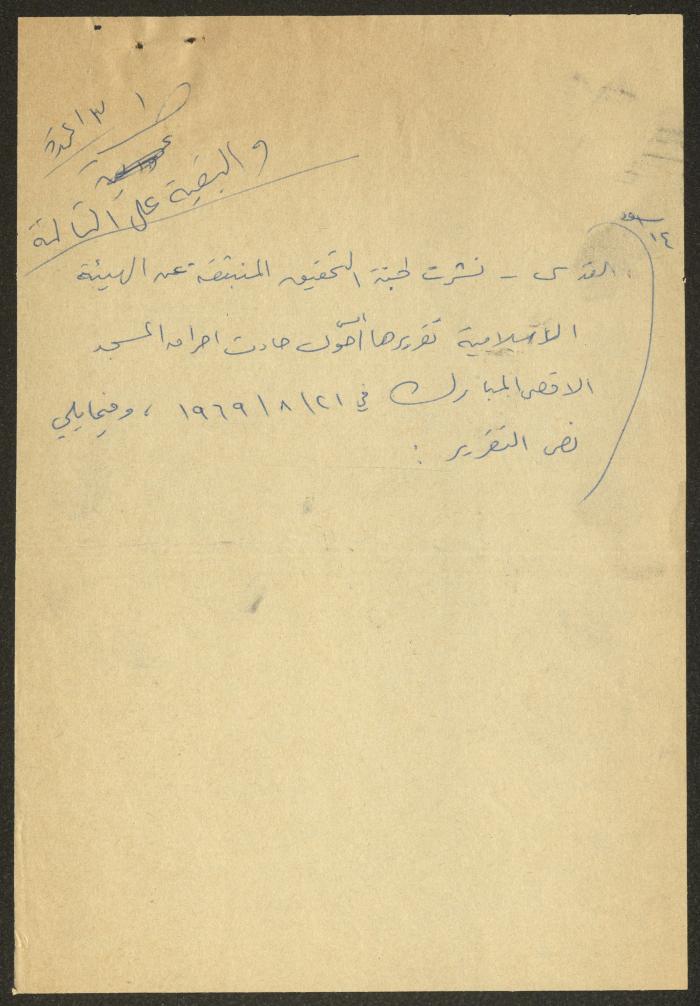 ١ ٣ اعمدة
والبقية على الثالثة
١٤ اسود
القدس - نشرت لجنة التحقيق المنبثقة عن الهيئة
الاسلامية تقريرها حول حادث احراق المسجد
الاقصى المبارك في ٢١/٨/١٩٦٩، وفيما يلي
نص التقرير :